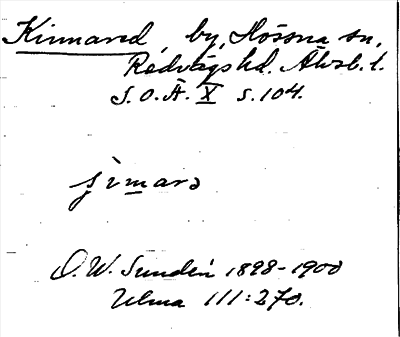 Kinnared, by, Hössna sn,
Redvägs hd. Älvsb. l.
S.O.Ä. X s. 104.
O. W. Sundén 1898-1900
Ulma 111:270.